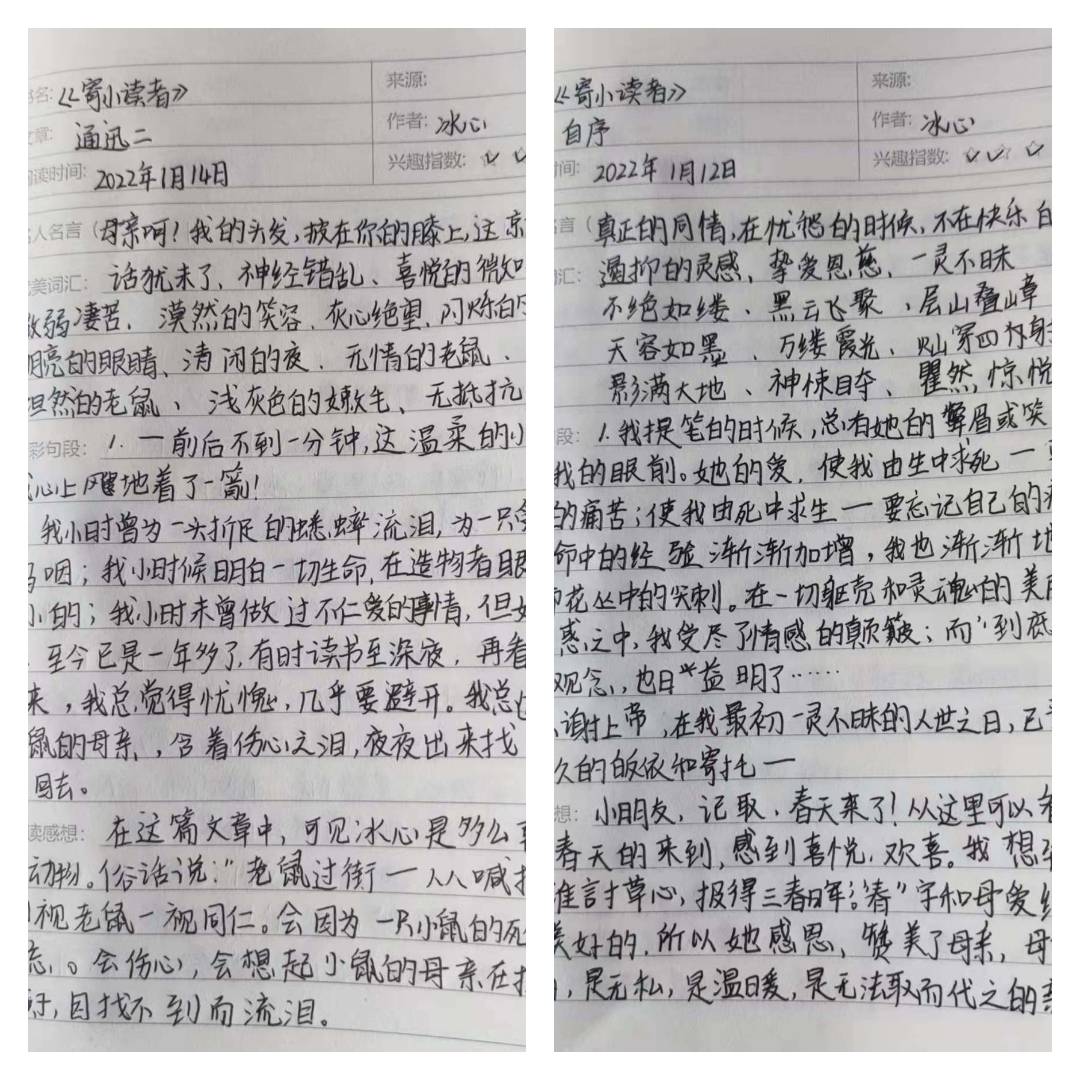 书名:《寄小读者》
来源:
文章: 通迅二
作者: 冰心
阅读时间: 2022年1月14日
兴趣指数:
名人名言(母亲呵!我的头发,披在你的膝上,这京
优美词汇: 话犹未了、神经错乱、喜悦的微知
微弱凄苦、漠然的笑容、灰心绝望、闪烁的
明亮的眼睛、清闲的夜、无情的老鼠、
坦然的老鼠、浅灰色的嫩毛、无抵抗
精彩句段: 1.一前后不到一分钟,这温柔的小
我心上飕地着了一箭!
我小时曾为一头折足的蟋蟀流泪,为一只
呜咽;我小时候明白一切生命,在造物者眼
小的;我小时未曾做过不仁爱的事情,但如
至今已是一年多了,有时读书至深夜,再看
来,我总觉得忧愧,几乎要避开。我总
鼠的母亲,,含着伤心之泪,夜夜出来找
回去。
阅读感想: 在这篇文章中,可见冰心是多么
动物。俗话说:“老鼠过街一人人喊打
视老鼠一视同仁。会因为一只小鼠的死
流,。会伤心,会想起小鼠的母亲在
时,因找不到而流泪。
《寄小读者》
来源:
自序
作者: 冰心
时间: 2022年1月12日
兴趣指数:
名言(真正的同情,在忧愁的时候,不在快乐的
词汇: 遏抑的灵感、挚爱恩慈、一灵不昧
不绝如缕、黑云飞聚、层山叠嶂
天容如墨、万缕霞光、灿穿四射
影满大地、神悚目夺、瞿然,惊悦
段: 1.我提笔的时候,总有她的颦眉或笑
我的眼前。她的爱,使我由生中求死一
的痛苦;使我由死中求生一要忘记自己的痛
命中的经验渐渐加增,我也渐渐地
花丛中的尖刺。在一切躯壳和灵魂的美丽
惑之中,我受尽了情感的颠簸;而“到底
观念,,也日益明了……
谢上帝,在我最初一灵不昧的人世之日,已
久的皈依和寄托一
想: 小朋友,记取,春天来了!从这里可以
春天的来到,感到喜悦,欢喜。我想
谁言寸草心,报得三春晖。“春”字和母爱
美好的,所以她感恩、赞美了母亲,母
,是无私,是温暖,是无法取而代之的